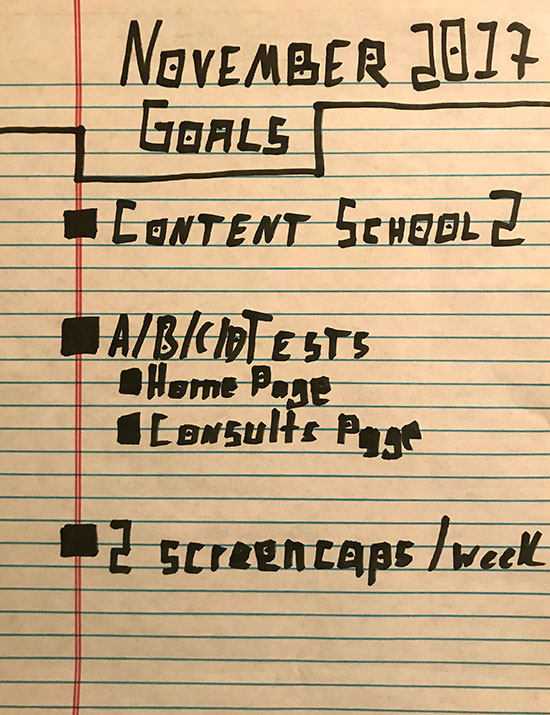 NOVEMBER 2017
GOALS
CONTENT SCHOOL 2
A/B/C/D TESTS
Home Page
Consults Page
2 screencaps/week